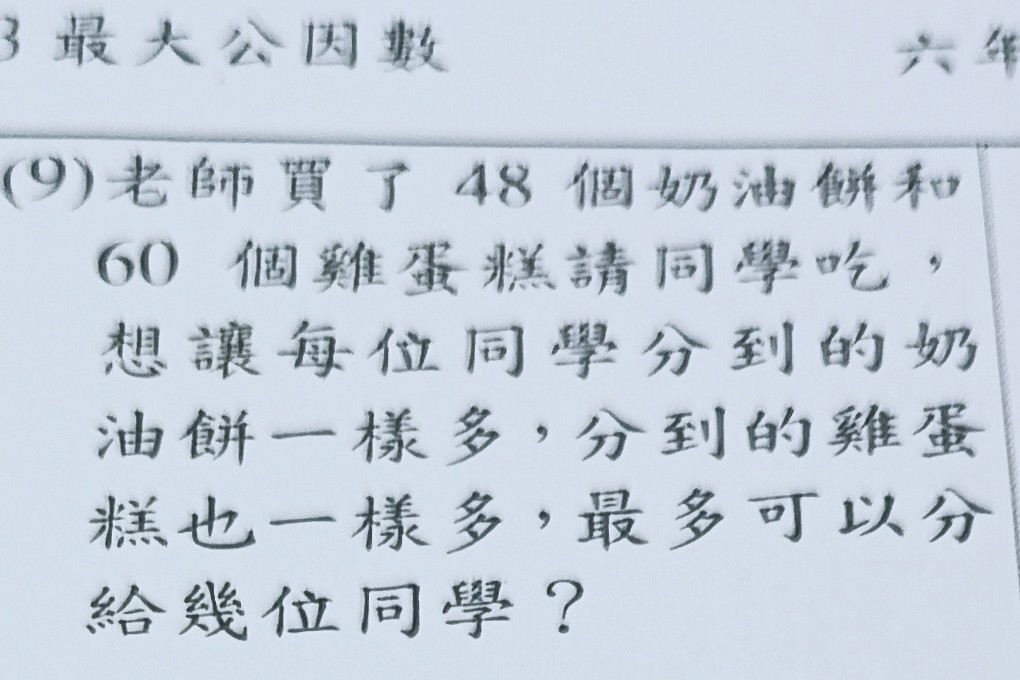 3 最大公因數 六年
(9)老師買了 48 個奶油餅和
60 個雞蛋糕請同學吃，
想讓每位同學分到的奶
油餅一樣多，分到的雞蛋
糕也一樣多，最多可以分
給幾位同學？